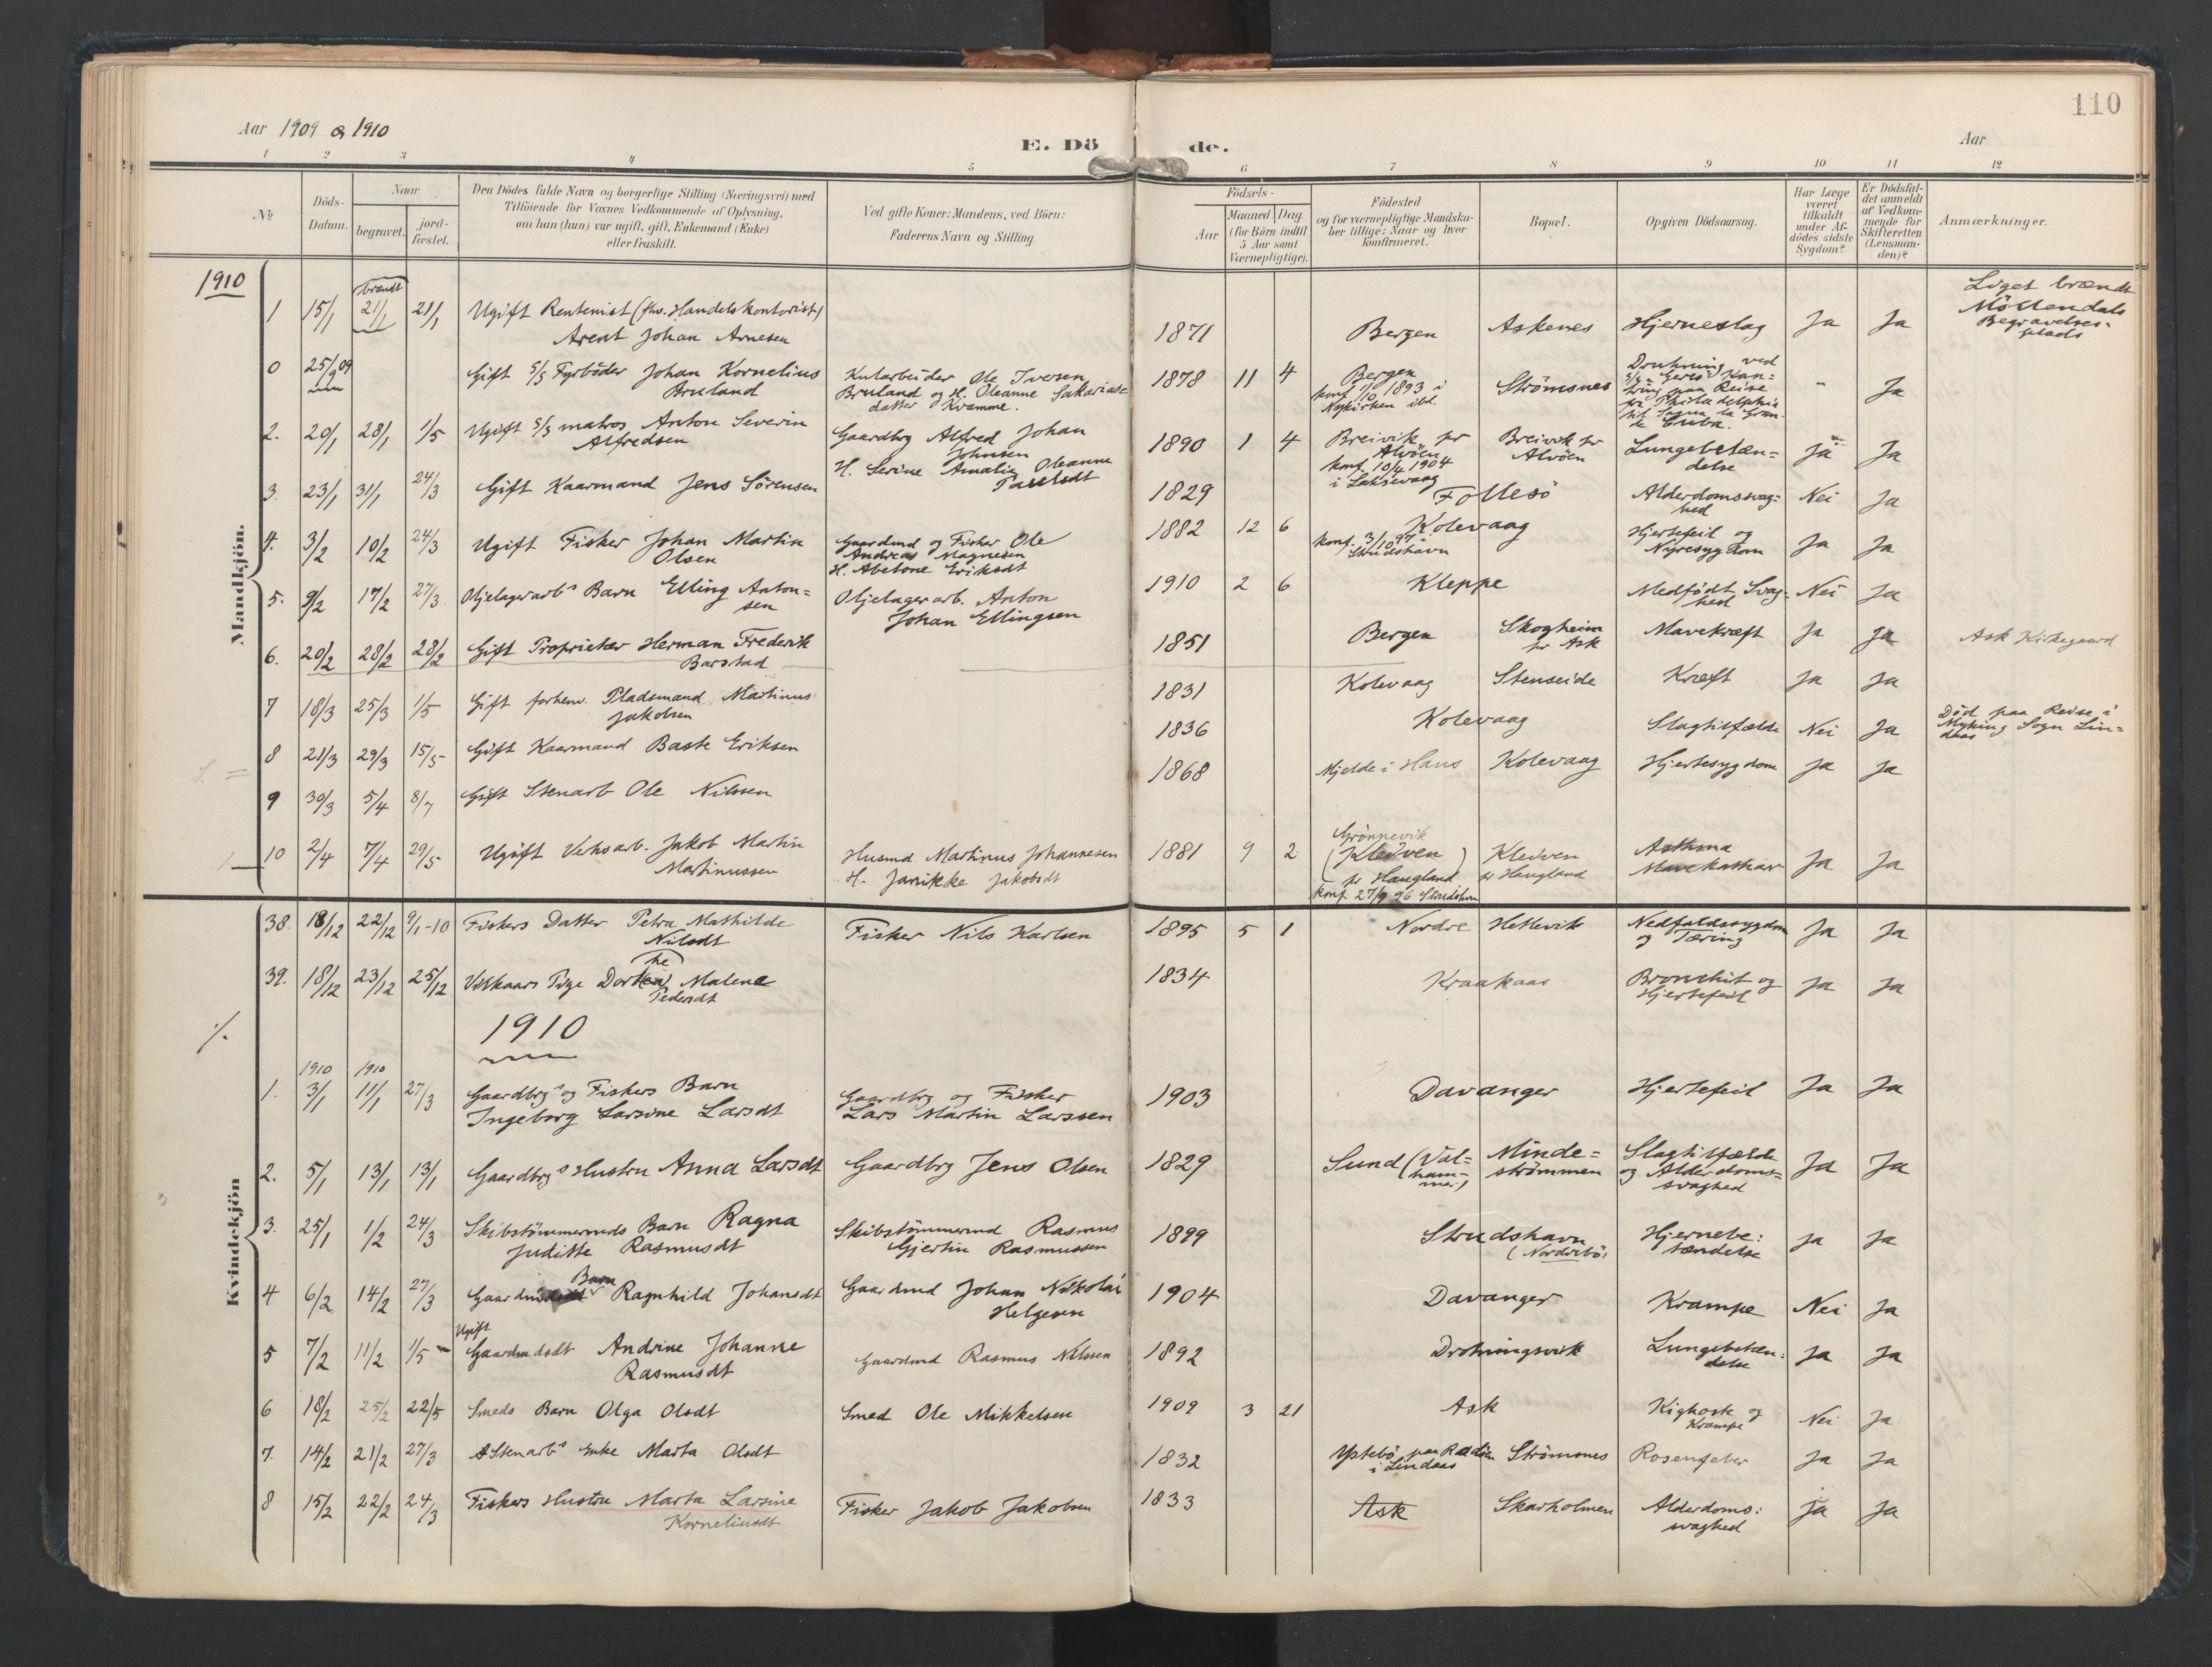 110
Aar 1909 & 1910
E. Dö de.
Aar
1 2 3 4 5 6 7 8 9 10 11 12
No.
Döds-
Datum.
Naar
begravet.
jord-
fæstet.
Den Dödes fulde Navn og borgerlige Stilling (Næringsvei) med
Tilföiende for Voxnes Vedkommende af Oplysning,
om han (hun) var ugift, gift, Enkemand (Enke)
eller fraskilt.
Ved gifte Koner: Mandens, ved Börn:
Faderens Navn og Stilling.
Födsels-
Aar
Maaned Dag.
(for Börn indtil
5 Aar samt
Værnepligtige).
Födested
og for værnepligtige Mandska-
ber tillige: Naar og hvor
konfirmeret.
Bopæl.
Opgiven Dödsaarsag.
Har Læge
været
tilkaldt
under Af-
dödes sidste
Sygdom?
Er Dödsfal-
det anmeldt
af Vedkom-
mende for
Skifteretten
(Lensman-
den)?
Anmærkninger.
1910
Mandkjön.
1 15/1 brændt 21/1 21/1 Ugift Rentenist (fhv. Handelskontorist)
Arent Johan Arnesen
1871 Bergen Askenes Hjerneslag Ja Ja
Liget brændt
Möllendals
Begravelses-
plads
0 25/9 09 Gift s/s Fyrböder Johan Kornelius
Bruland
Kularbeider Ole Iversen
Bruland og H. Oleanne Sakarias-
datter Kvamme.
1878 11 4 Bergen
konf 1/10 1893 i
Nykirken ibd.
Strömsnes
Drukning ved
paa Reise
fra Philadelphia
til Sagua la Gran-
de Cuba.
" Ja
2. 20/1 28/1 1/5 Ugift s/s matros Anton Severin
Alfredsen
Gaardbrg Alfred Johan
Johnsen
H. Serine Amalie Oleanne
1890 1 4 Breivik pr
Alvöen
konf. 10/4 1904
i Laksevaag
Breivik pr
Alvöen
Lungebetæn=
delse
Ja Ja
3. 23/1 31/1 24/3 Gift Kaarmand Jens Sörensen
1829 Follesö Alderdomssvag=
hed
Nei Ja
4. 3/2 10/2 24/3 Ugift Fisker Johan Martin
Olsen
Gaardmd og Fisker Ole
Andreas Magnesen
H. Abelone Eriksdt
1882 12 6 Kolevaag
konf. 3/10 97 i
Strudshavn
Hjertefeil og
Nyresygdom
Ja Ja
5. 9/2 17/2 27/3 Oljelagerarbs Barn Elling Anton=
sen
Oljelagerarb. Anton
Johan Ellingsen
1910 2 6 Kleppe Medfödt Svag-
hed
Nei Ja
6. 20/2 28/2 28/2 Gift Proprietær Herman Frederik
Barstad
1851 Bergen Skogheim
pr Ask
Mavekræft Ja Ja Ask Kirkegaard
7 18/3 25/3 1/5 Gift forhenv. Pladsmand Martinus
Jakobsen
1831 Kolevaag Stenseide Kræft Ja Ja
8 21/3 29/3 15/5 Gift Kaarmand Baste Eriksen
1836 Kolevaag Slagtilfælde Nei Ja
Död paa Reise i
Myking Sogn Lin=
daas
9 30/3 5/4 8/7 Gift Stenarb Ole Nilssen
1868 Mjelde i Haus Kolevaag Hjertesygdom Ja Ja
10 2/4 7/4 29/5 Ugift Verksarb. Jakob Martin
Martinussen
Husmd Martinus Johannesen
H. Janikke Jakobsdt
1881 9 2 Grönnevik
(Kleiven)
pr Haugland
konf 27/9 96 Strudshvn
Kleiven
pr Haugland
Asthma
Mavekatharr
Ja Ja
Kvindekjön
38. 18/12 22/12 9/1-10 Fiskers Datter Petra Mathilde
Nilsdt
Fisker Nils Karlsen
1895 5 1 Nordre Hetlevik Nedfaldssygdom
og Tæring
Ja Ja
39. 18/12 23/12 25/12 Vilkaars Pige Dorthea Malene
Pedersdt
1834 Kraakaas Bronchit og
Hjertefeil
Ja Ja
1910
1910 1910
1. 3/1 11/1 27/3 Gaardbrgs og Fiskers Barn
Ingeborg Larsine Larsdt
Gaardbrg og Fisker
Lars Martin Larssen
1903 Davanger Hjertefeil Ja Ja
2. 5/1 13/1 13/1 Gaardbrgs Hustru Anna Larsdt
Gaardbrg Jens Olsen
1829 Sund (Val=
ham=
mer)
Minde=
strömmen
Slagtilfælde
og Alderdoms=
svaghed
Ja Ja
3. 25/1 1/2 24/3 Skibstömmermds Barn Ragna
Juditte Rasmusdt
Skibstömmermd Rasmus
Gjertin Rasmussen
1899 Strudshavn
(Nordrebö)
Hjernebe:
tændelse
Ja Ja
4 6/2 14/2 27/3 Gaardmds Barn Ragnhild Johansdt
Gaardmd Johan Nikolai
Helgesen
1904 Davanger Krampe Nei Ja
5 7/2 11/2 1/5 Ugift
Gaardmdsdt Andrine Johanne
Rasmusdt
Gaardmd Rasmus Nilssen
1892 Drotningsvik Lungebetæn:
delse
Ja Ja
6 18/2 25/2 22/5 Smeds Barn Olga Olsdt
Smed Ole Mikkelsen
1909 3 21 Ask Kighoste og
Krampe
Nei Ja
7. 14/2 21/2 27/3 Stenarbs Enke Marta Olsdt
1832 Ystebö paa Radöen
i Lindaas
Strömsnes Rosenfeber Ja Ja
8 15/2 22/2 24/3 Fiskers Hustru Marta Larsine
Korneliusdt
Fisker Jakob Jakobsen
1833 Ask Skarholmen Alderdoms:
svaghed
Ja Ja